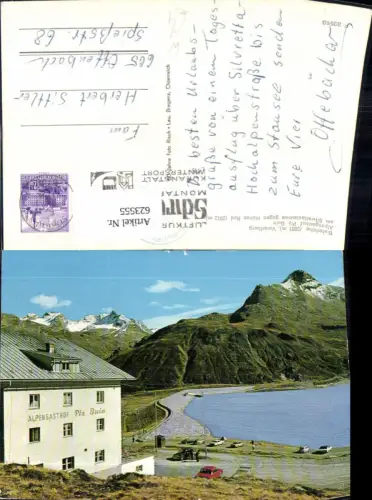 Fam
Herbert Sittler
Spießstr. 68
605 Offenbach
Die besten Urlaubs-
grüße von einem Tages-
ausflug über Silvretta-
Hochalpenstraße bis
zum Stausee senden
Eure Vier
Offebächer
Bielerhöhe (2071 m), Vorarlberg
Alpengasthof Piz Buin
am Silvrettastausee gegen Hohes Rad (2912 m)
LUFTKUR
Schru
MONTAF
KRANSTALT
WINTERSPORT
Artikel Nr.
623555
ALPENGASTHOF Piz Buin